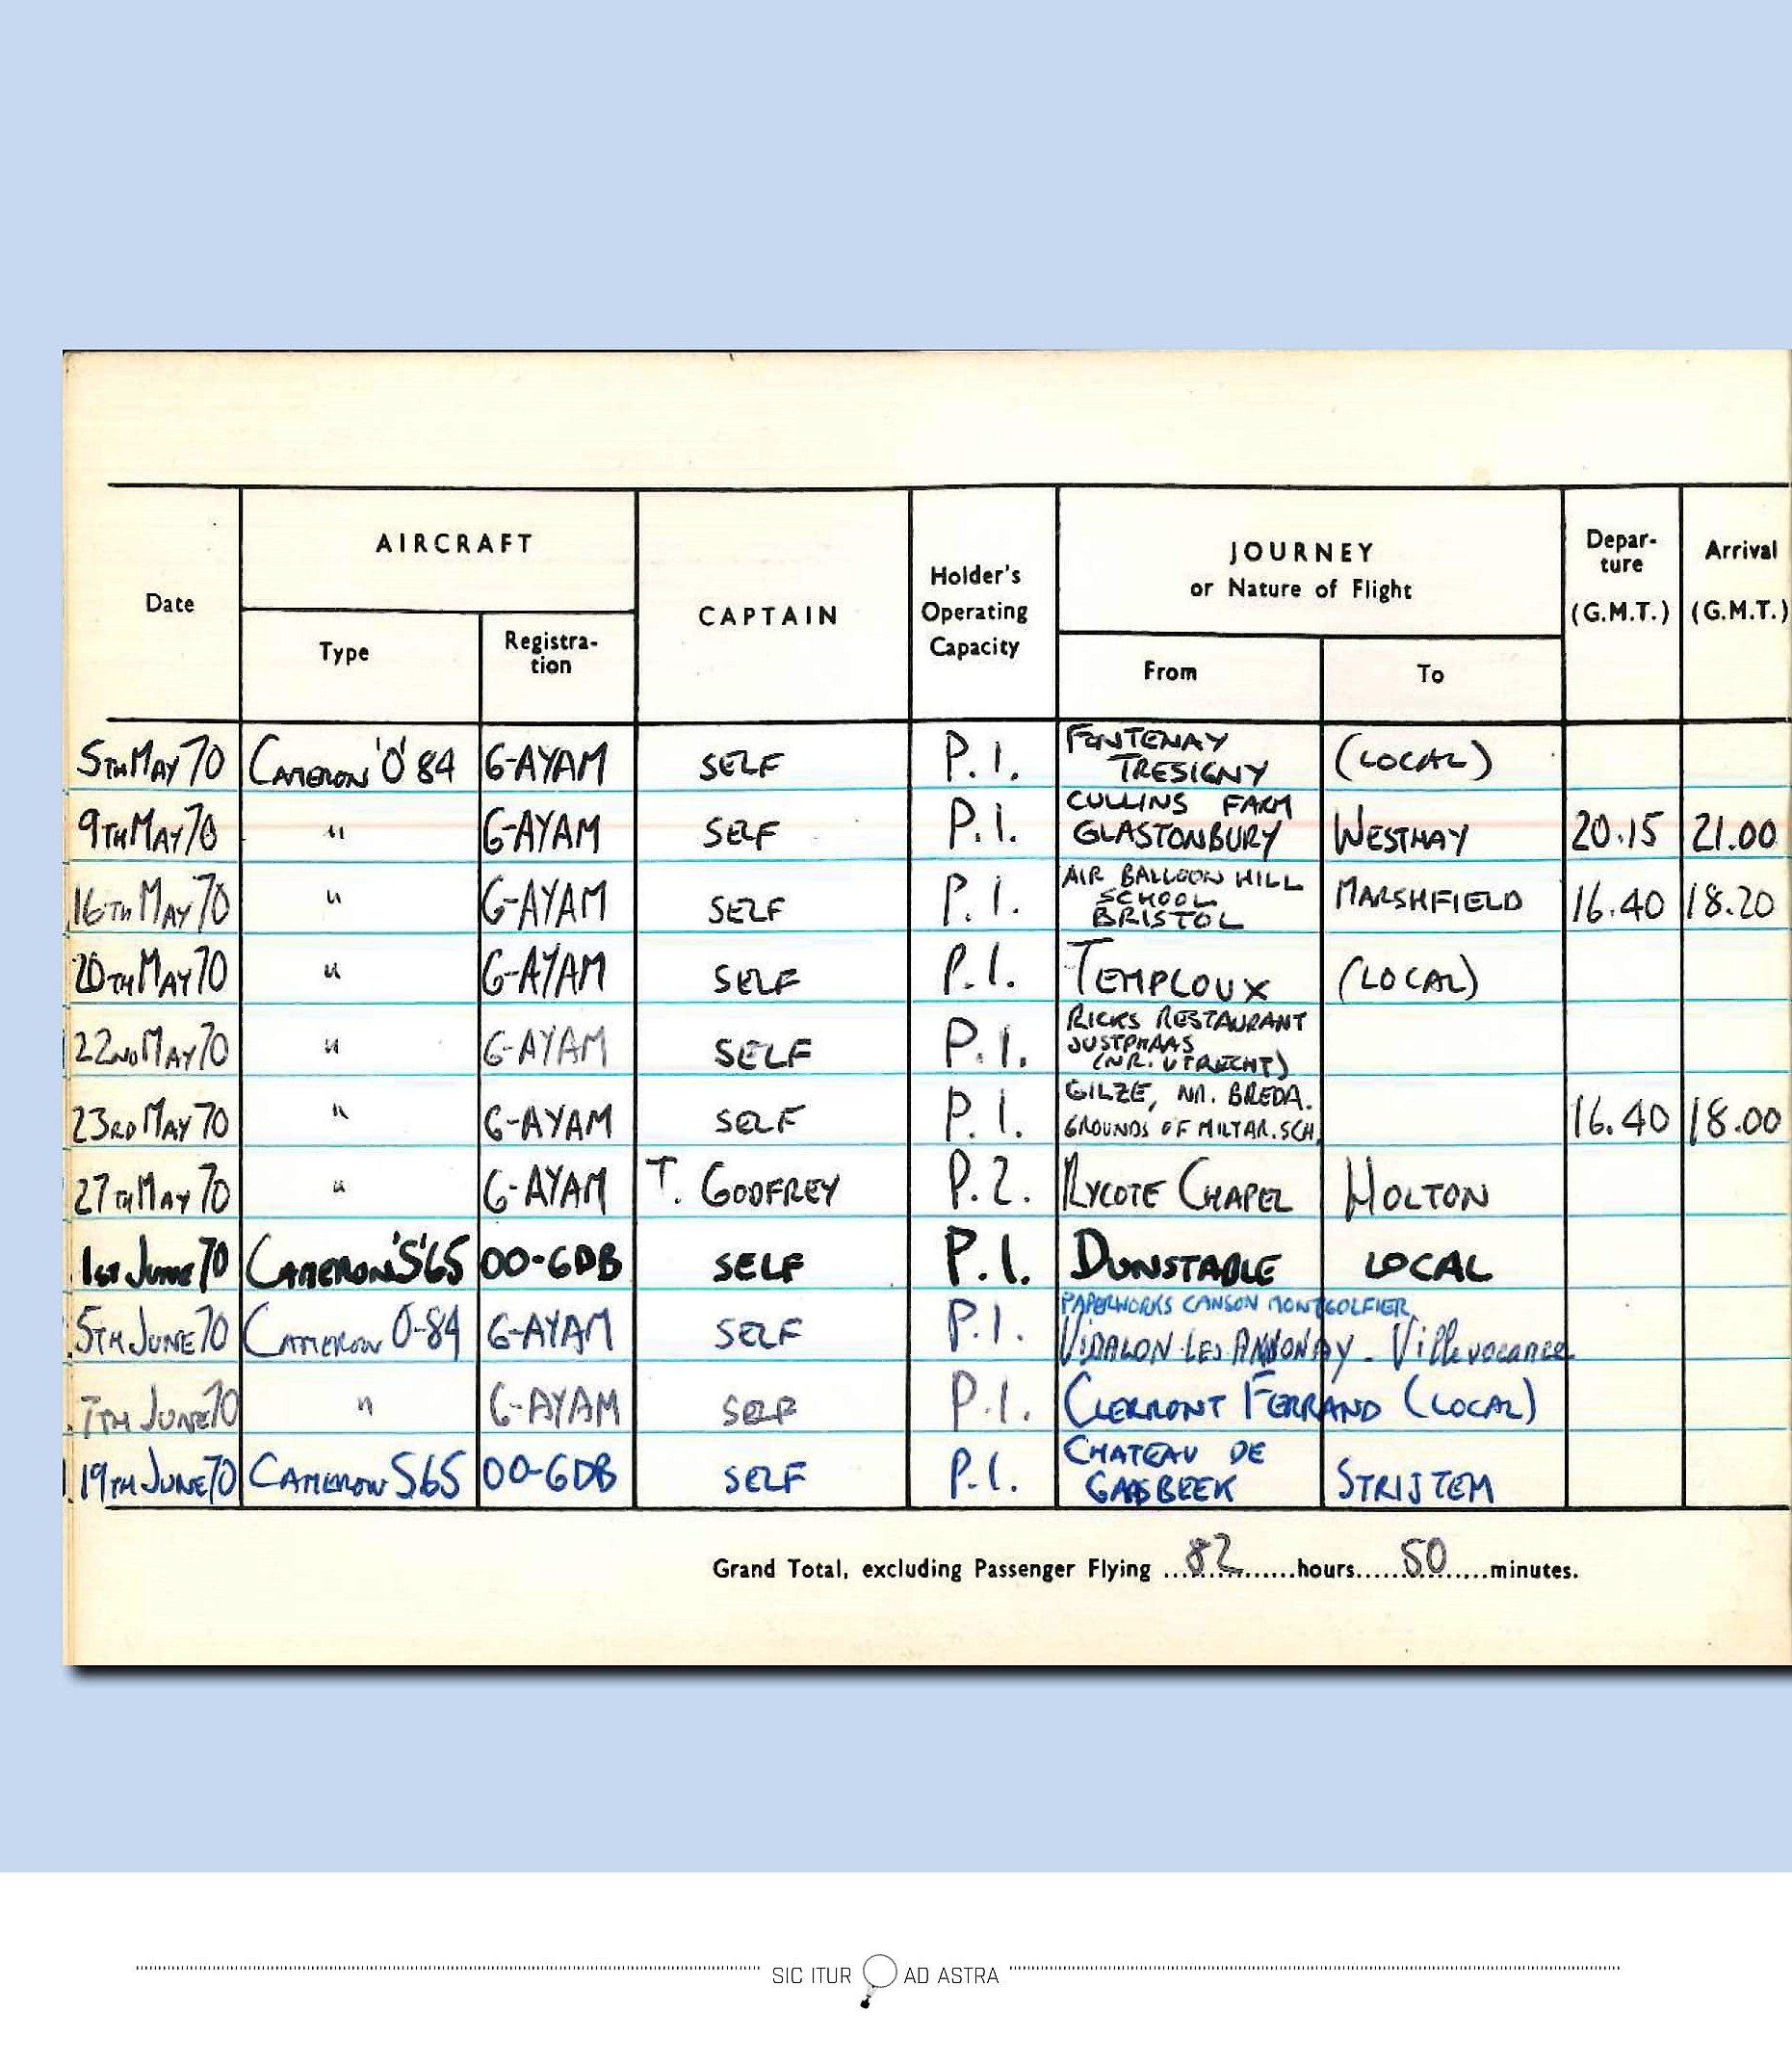 Date
AIRCRAFT
Type
Registra-
tion
CAPTAIN
Holder's
Operating
Capacity
JOURNEY
or Nature of Flight
From
To
Depar-
ture
(G.M.T.)
Arrival
(G.M.T.)
5TH MAY 70 CAMERON 'O' 84 G-AYAM SELF P.1. FONTENAY TRESIGNY (LOCAL)
9TH MAY 70 " G-AYAM SELF P.1. CULLINS FARM GLASTONBURY WESTHAY 20.15 21.00
16TH MAY 70 " G-AYAM SELF P.1. AIR BALLOON HILL SCHOOL BRISTOL MARSHFIELD 16.40 18.20
20TH MAY 70 " G-AYAM SELF P.1. TEMPLOUX (LOCAL)
22ND MAY 70 " G-AYAM SELF P.1. RICKS RESTAURANT (NR. UTRECHT)
23RD MAY 70 " G-AYAM SELF P.1. GILZE, NR. BREDA. GROUNDS OF MILTAR. SCH. 16.40 18.00
27TH MAY 70 " G-AYAM T. GODFREY P.2. RYCOTE CHAPEL HOLTON
1ST JUNE 70 CAMERON 'S' 65 OO-GDB SELF P.1. DUNSTABLE LOCAL
5TH JUNE 70 CAMERON O-84 G-AYAM SELF P.1. PAPERWORKS CANSON MONTGOLFIER VIDALON-LES-ANNONAY - Villevocance
7TH JUNE 70 " G-AYAM SELF P.1. CLERMONT FERRAND (LOCAL)
19TH JUNE 70 CAMERON S65 OO-GDB SELF P.1. CHATEAU DE GAASBEEK STRIJTEM
Grand Total, excluding Passenger Flying ...82...hours...50...minutes.
SIC ITUR AD ASTRA